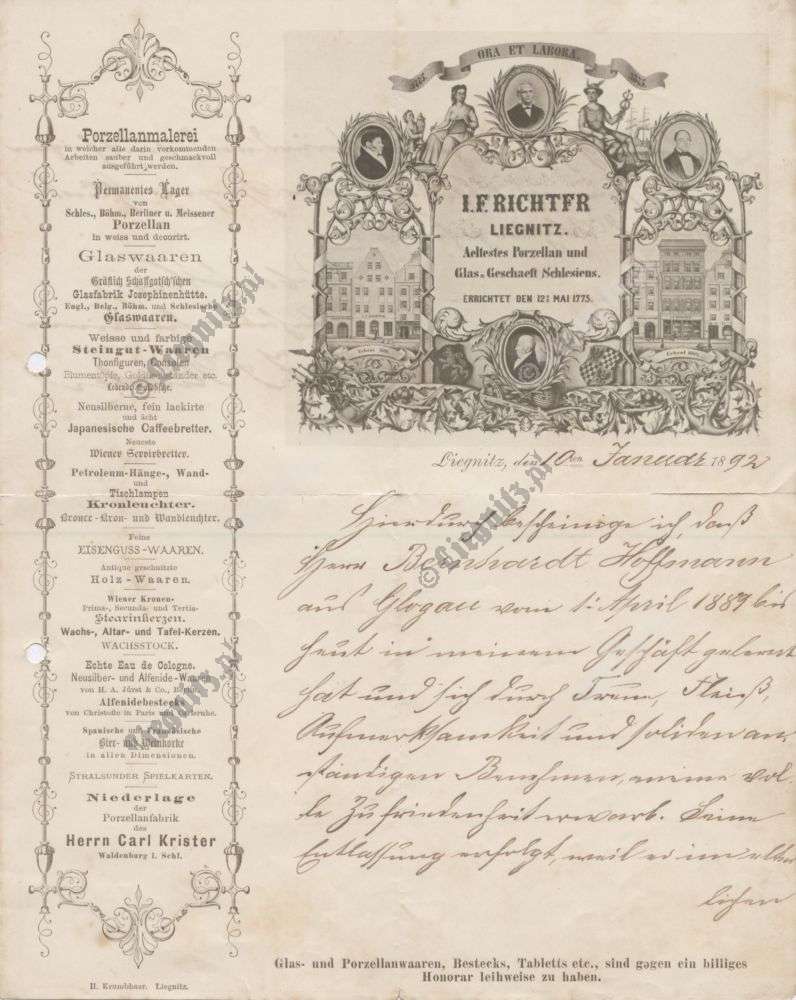 ORA ET LABORA
I. F. RICHTER
LIEGNITZ.
Aeltestes Porzellan und
Glas-Geschaeft Schlesiens.
ERRICHTET DEN 12t MAI 1775.
Porzellanmalerei
in welcher alle darin vorkommenden
Arbeiten sauber und geschmackvoll
ausgeführt werden.
Permanentes Lager
von
Schles., Böhm., Berliner u. Meissener
Porzellan
in weiss und decorirt.
Glaswaaren
der
Gräflich Schaffgotsch'schen
Glasfabrik Josephinenhütte.
Engl., Belg., Böhm. und Schlesische
Glaswaaren.
Weisse und farbige
Steingut-Waaren
Thonfiguren, Consolen
Blumentöpfe, etc.
Neusilberne, fein lackirte
und ächt
Japanesische Caffeebretter.
Neueste
Wiener Servirbretter.
Petroleum-Hänge-, Wand-
und
Tischlampen
Kronleuchter.
Bronce-Kron- und Wandleuchter.
Feine
EISENGUSS-WAAREN.
Antique geschnitzte
Holz-Waaren.
Wiener Kronen-
Prima-, Secunda- und Tertia-
Stearinkerzen.
Wachs-, Altar- und Tafel-Kerzen.
WACHSSTOCK.
Echte Eau de Cologne.
Neusilber- und Alfenide-Waaren
von H. A. Jürst & Co.,
Alfenidebestecke
von Christofle in Paris und Karlsruhe.
Spanische und
Bier- und Weinkorke
in allen Dimensionen.
STRALSUNDER SPIELKARTEN.
Niederlage
der
Porzellanfabrik
des
Herrn Carl Krister
Waldenburg i. Schl.
Liegnitz, den 10ten Januar 1892
Hierdurch bescheinige ich, daß
Herr Bernhardt Hoffmann
aus Glogau vom 1. April 1889 bis
heut in meinem Geschäft gelernt
hat und sich durch Treue, Fleiß,
Aufmerksamkeit und soliden an-
ständigen Benehmen, meine vol-
le Zufriedenheit erwarb. Seine
Entlassung erfolgt, weil er im elter-
lichen
Glas- und Porzellanwaaren, Bestecks, Tabletts etc., sind gegen ein billiges
Honorar leihweise zu haben.
H. Krumbhaar. Liegnitz.
©Liegnitz.pl
©Liegnitz.pl
Liegnitz.pl